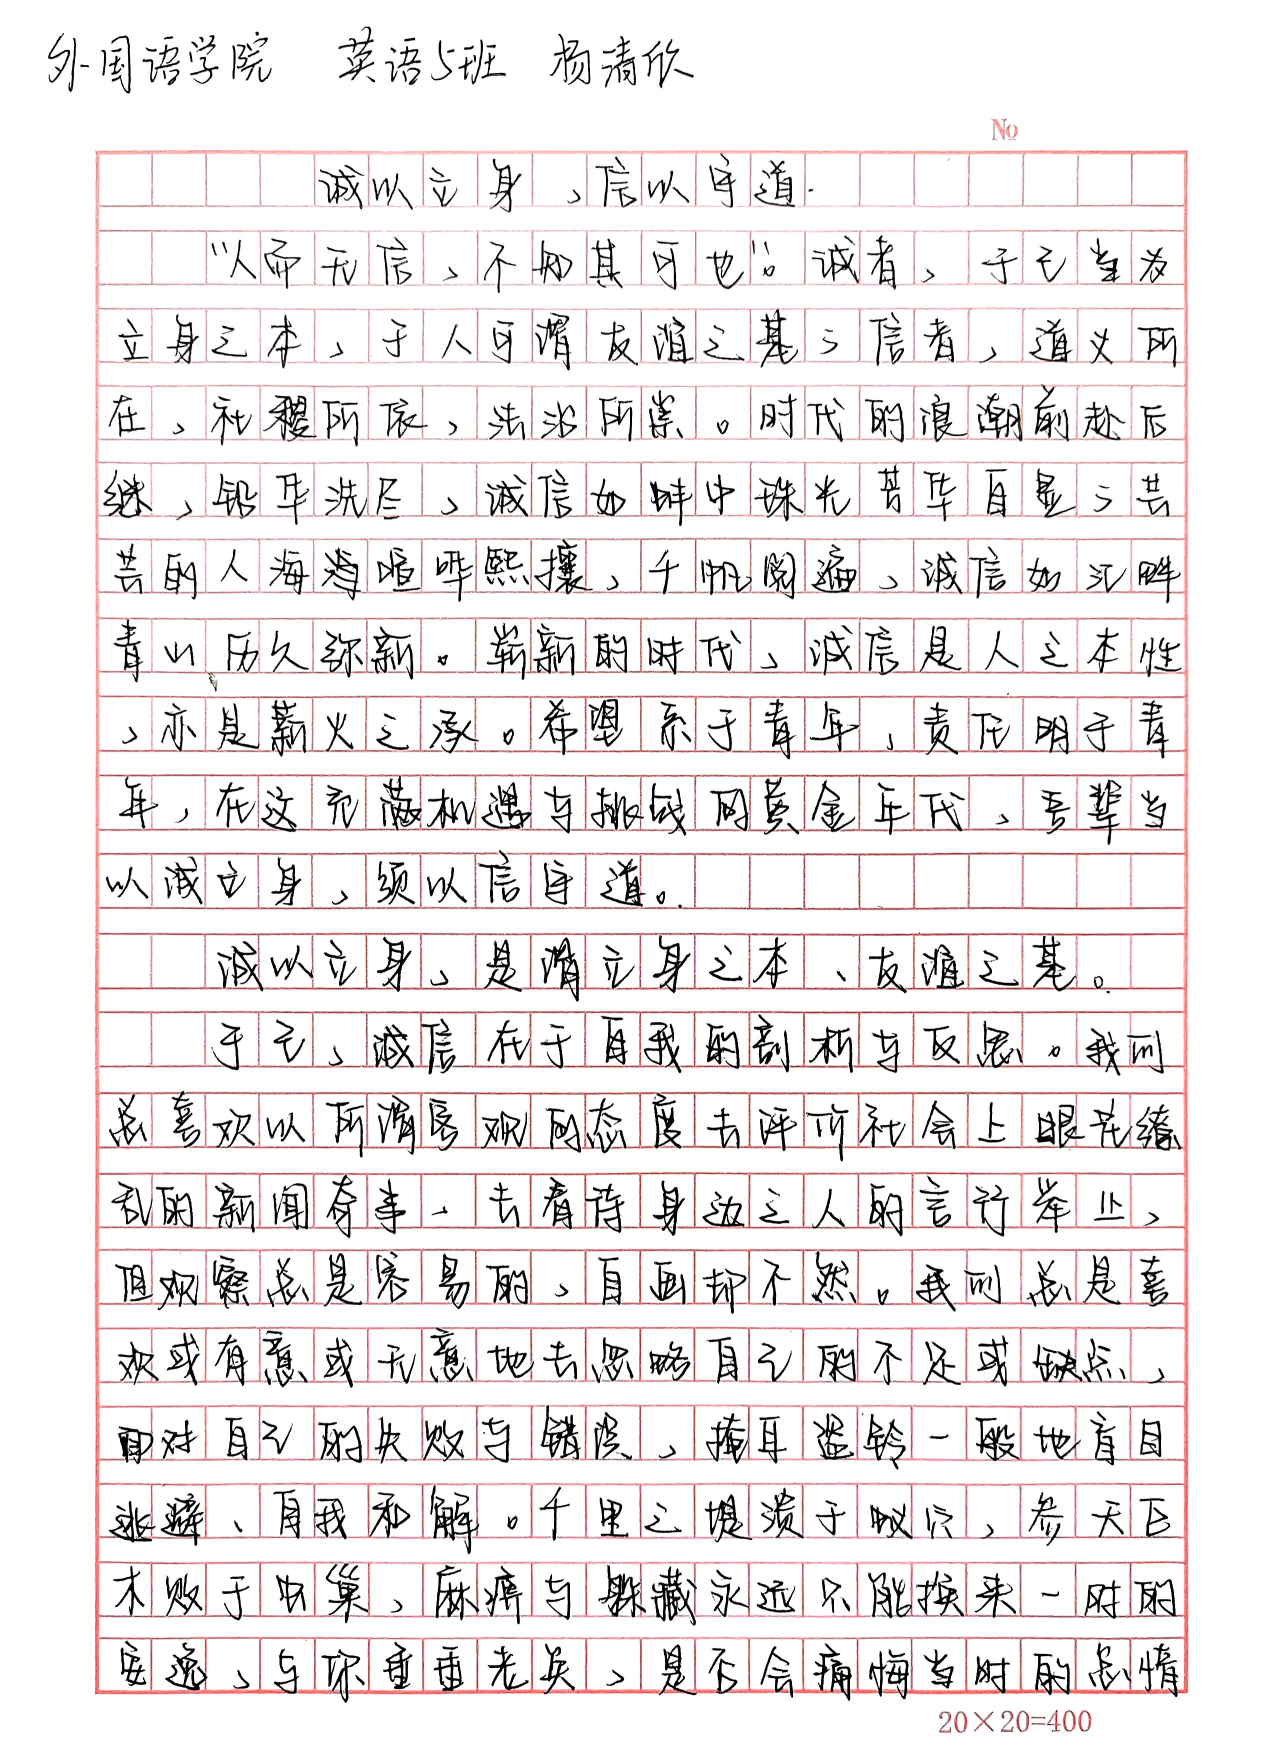 外国语学院 英语5班 杨清欣
No
诚以立身,信以守道.
“人而无信,不知其可也”。诚者,于己当为
立身之本,于人可谓友谊之基;信者,道义所
在,社稷所依,法治所崇。时代的浪潮前赴后
继,铅华洗尽,诚信如蚌中珠光芳华自显;芸
芸的人海喧哗熙攘,千帆阅遍,诚信如江畔
青山历久弥新。崭新的时代,诚信是人之本性
,亦是薪火之承。希望系于青年,责任明于青
年,在这充满机遇与挑战的黄金年代,吾辈当
以诚立身,须以信守道。
诚以立身,是谓立身之本、友谊之基。
于己,诚信在于自我的剖析与反思。我们
总喜欢以所谓客观的态度去评价社会上眼花缭
乱的新闻奇事、去看待身边之人的言行举止,
但观察总是容易的,自画却不然。我们总是喜
欢或有意或无意地去忽略自己的不足或缺点,
面对自己的失败与错误,掩耳盗铃一般地盲目
逃避、自我和解。千里之堤溃于蚁穴,参天巨
木败于虫巢,麻痹与躲藏永远只能换来一时的
安逸,与你垂垂老矣,是否会痛悔当时的怠惰
20×20=400